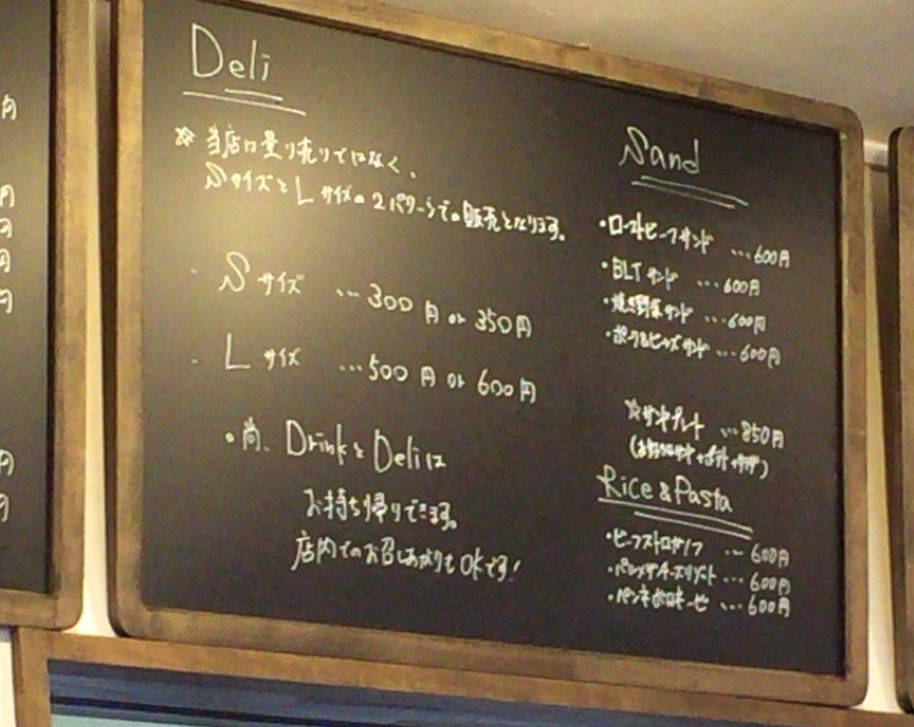 Deli
☆当店は量り売りではなく、
SサイズとLサイズの2パターンでの販売となります。
・Sサイズ …300円 or 350円
・Lサイズ …500円 or 600円
・尚、DrinkとDeliは
お持ち帰りできます。
店内でのお召しあがりもOKです!
Sand
・ローストビーフサンド …600円
・BLTサンド …600円
・焼き野菜サンド …600円
・ポーク&ビーンズサンド …600円
☆サンドプレート …850円
Rice & Pasta
・ビーフストロガノフ …600円
・パルメザンチーズリゾット …600円
・ペンネボロネーゼ …600円
円
円
円
円
円
円
円